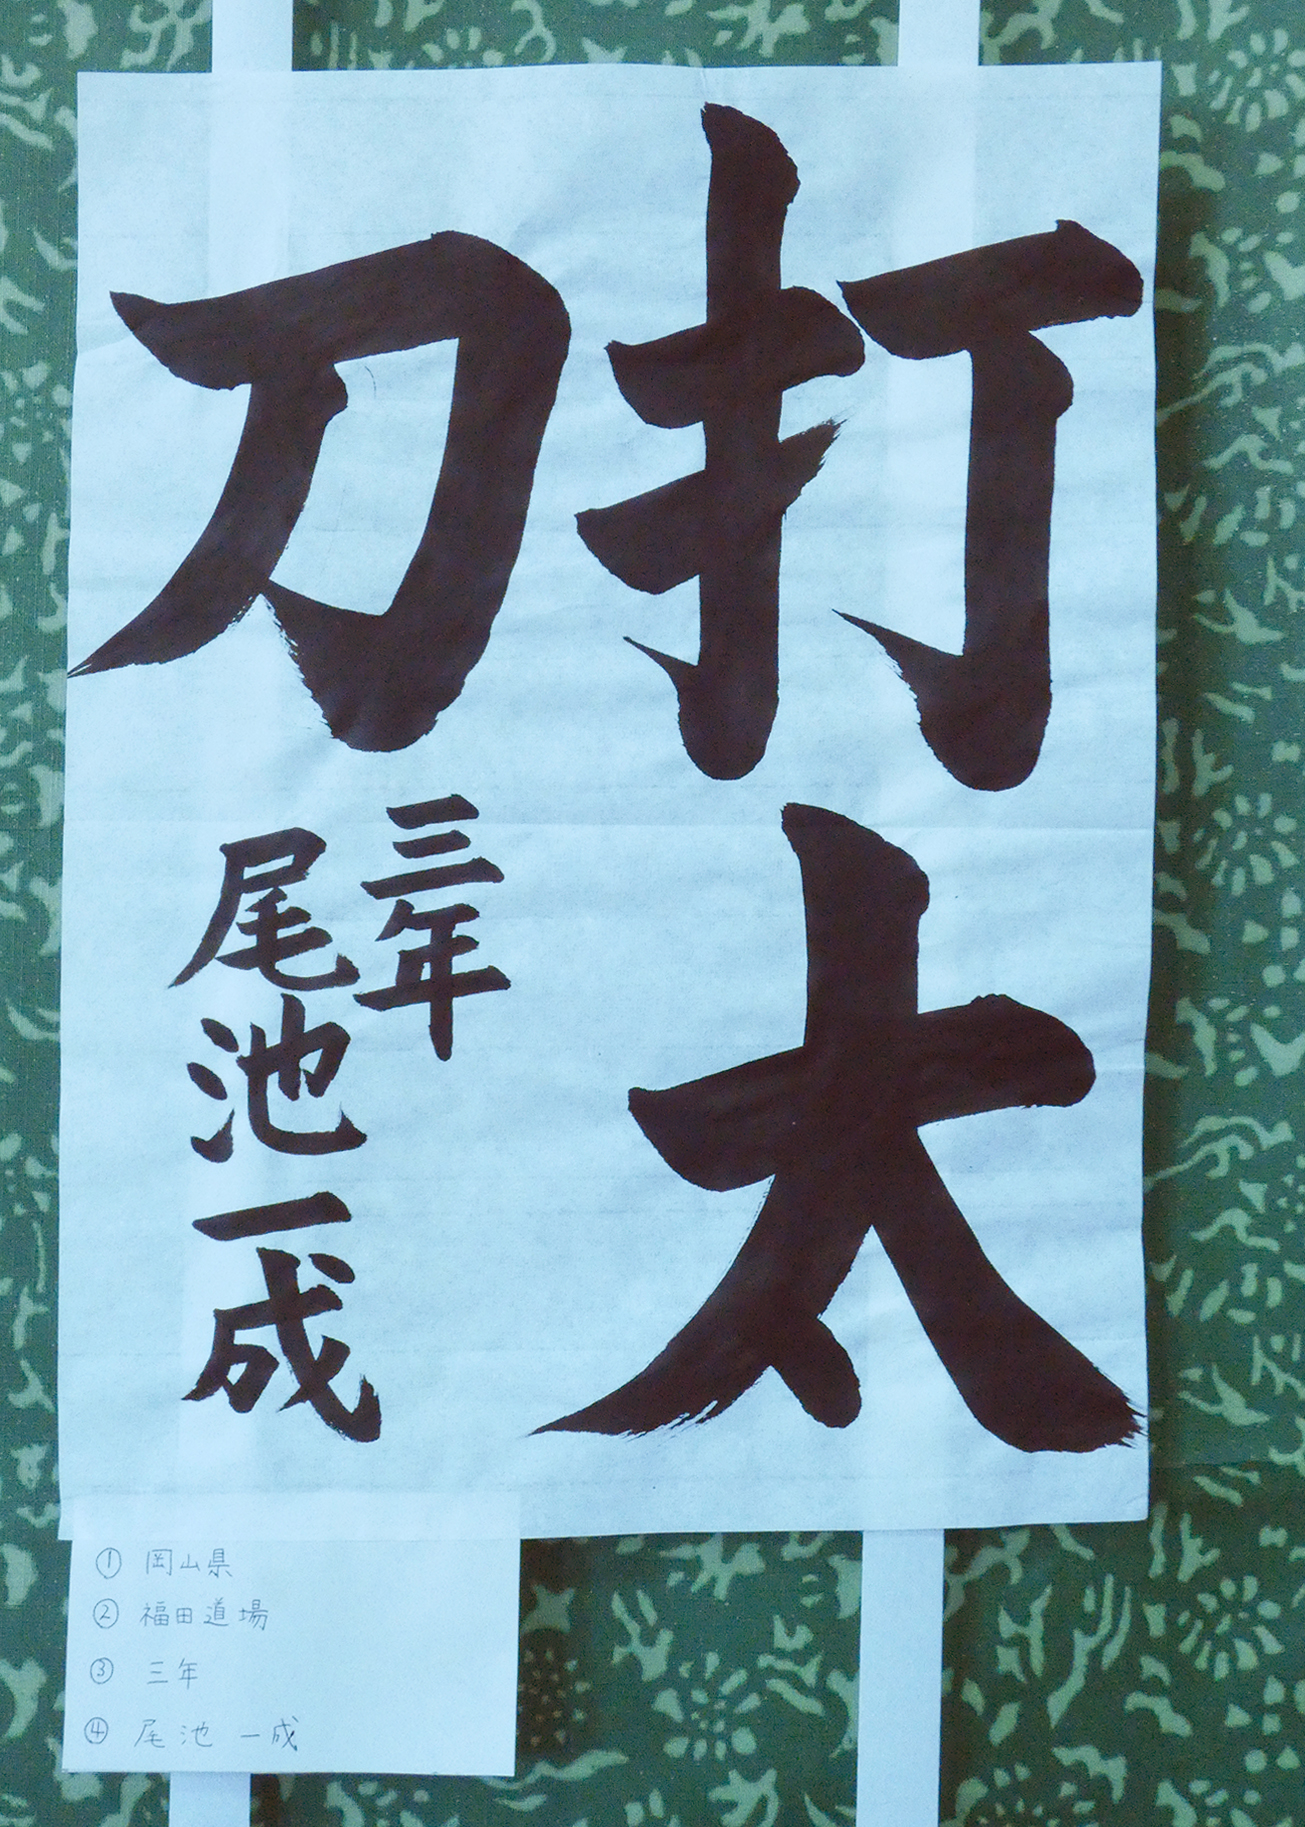 打太
刀
三年
尾池一成
① 岡山県
② 福田道場
③ 三年
④ 尾池 一成